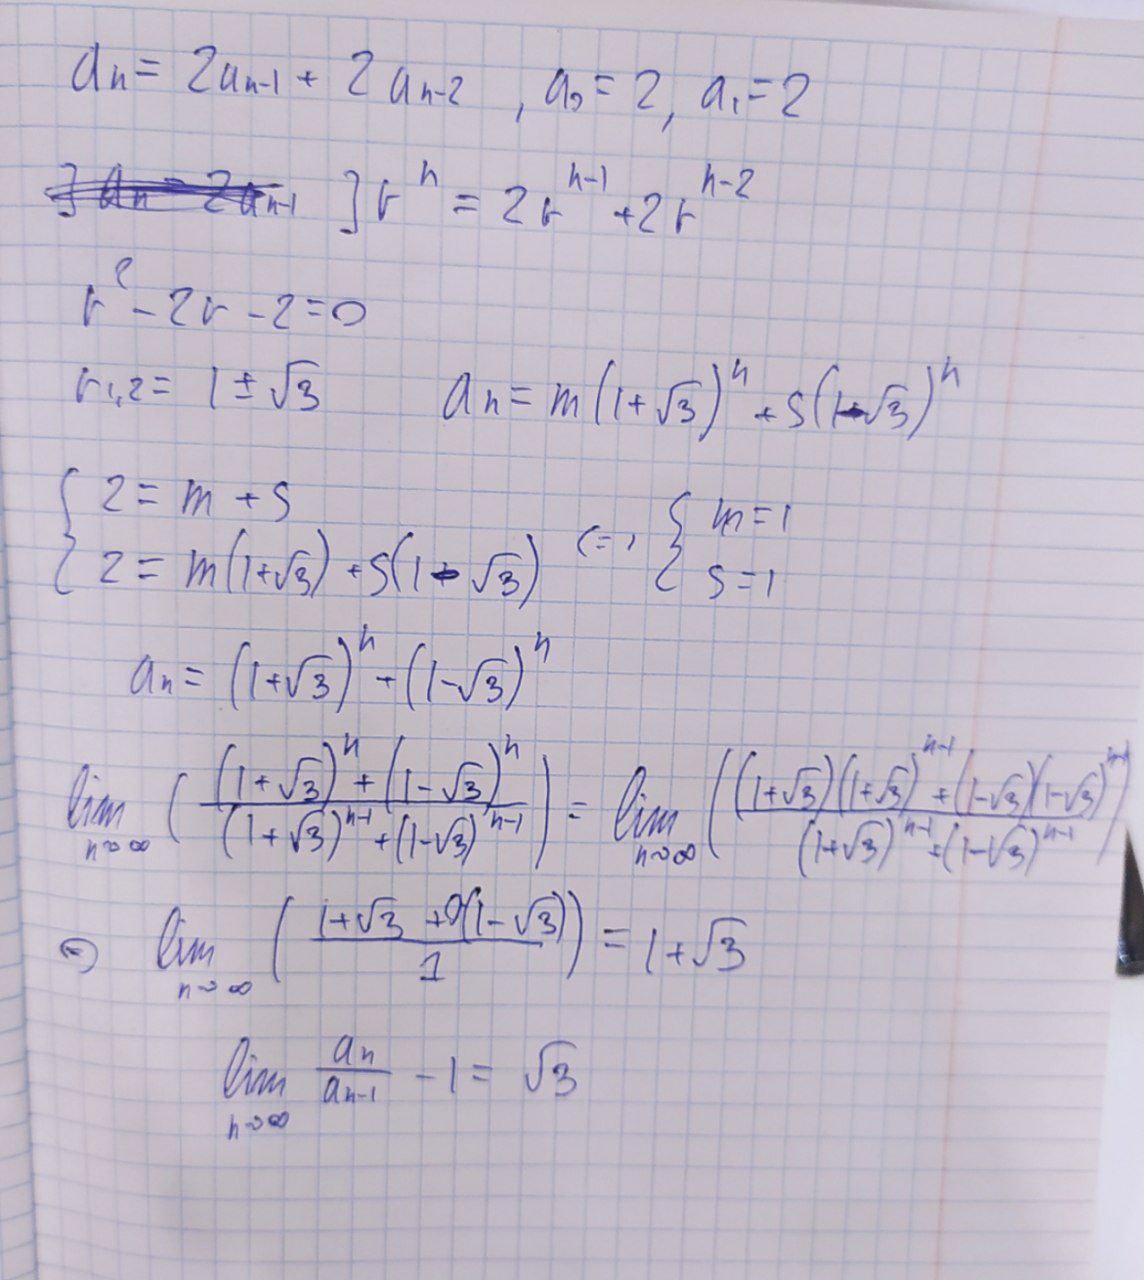 aₙ = 2aₙ₋₁ + 2aₙ₋₂ , a₀ = 2, a₁ = 2
] rⁿ = 2rⁿ⁻¹ + 2rⁿ⁻²
r² - 2r - 2 = 0
r₁,₂ = 1 ± √3    aₙ = m(1+√3)ⁿ + s(1-√3)ⁿ
{ 2 = m + s
{ 2 = m(1+√3) + s(1-√3) <=> { m = 1
{ s = 1
aₙ = (1+√3)ⁿ + (1-√3)ⁿ
lim n→∞ ( ((1+√3)ⁿ + (1-√3)ⁿ) / ((1+√3)ⁿ⁻¹ + (1-√3)ⁿ⁻¹) ) = lim n→∞ ( ((1+√3)(1+√3)ⁿ⁻¹ + (1-√3)(1-√3)ⁿ⁻¹) / ((1+√3)ⁿ⁻¹ + (1-√3)ⁿ⁻¹) )
(=) lim n→∞ ( (1+√3 + 0(1-√3)) / 1 ) = 1+√3
lim n→∞ aₙ / aₙ₋₁ - 1 = √3